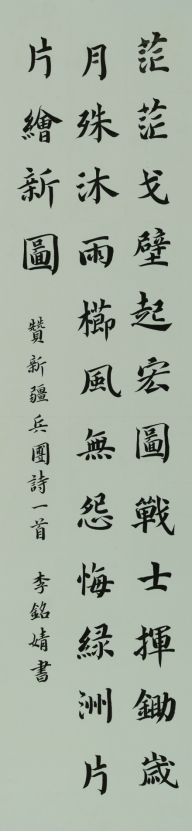 茫茫戈壁起宏圖戰士揮鋤歲
月殊沐雨櫛風無怨悔緑洲片
片繪新圖
贊新疆兵團詩一首 李銘婧書